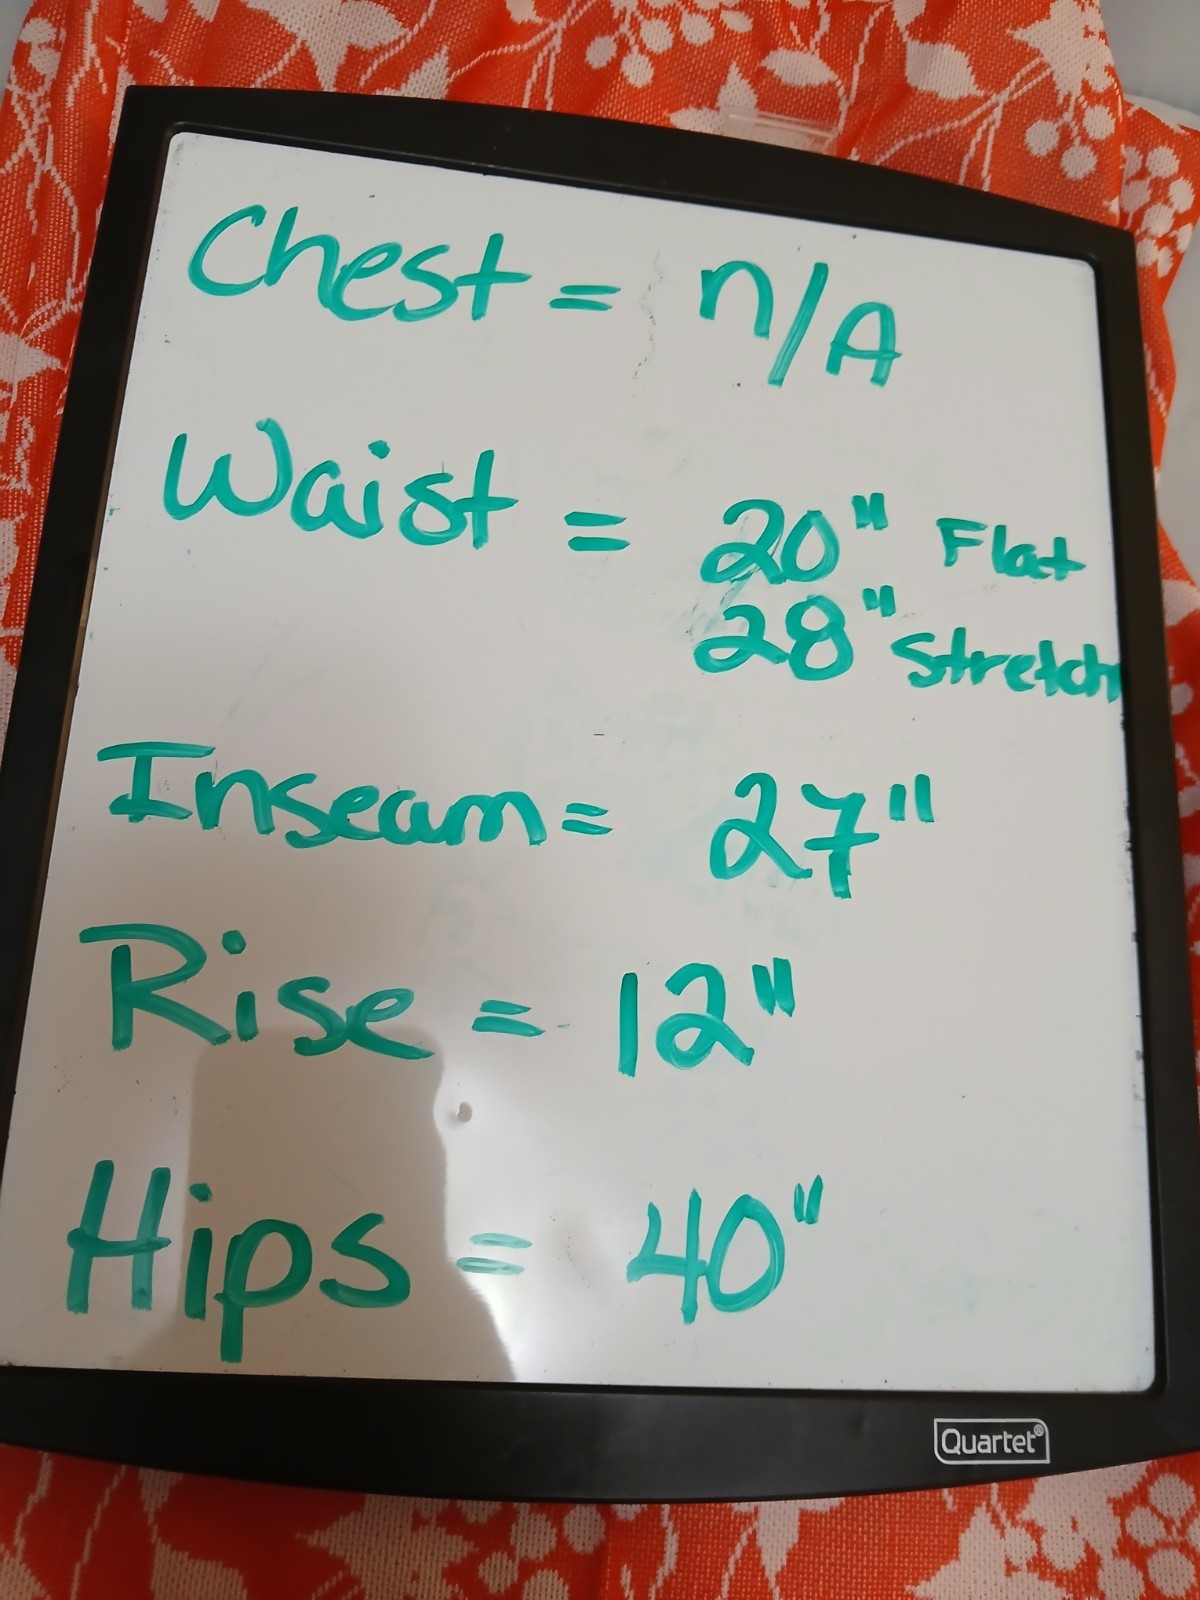 Chest = n/A
Waist = 20" Flat
28" Stretch
Inseam = 27"
Rise = 12"
Hips = 40"
Quartet®